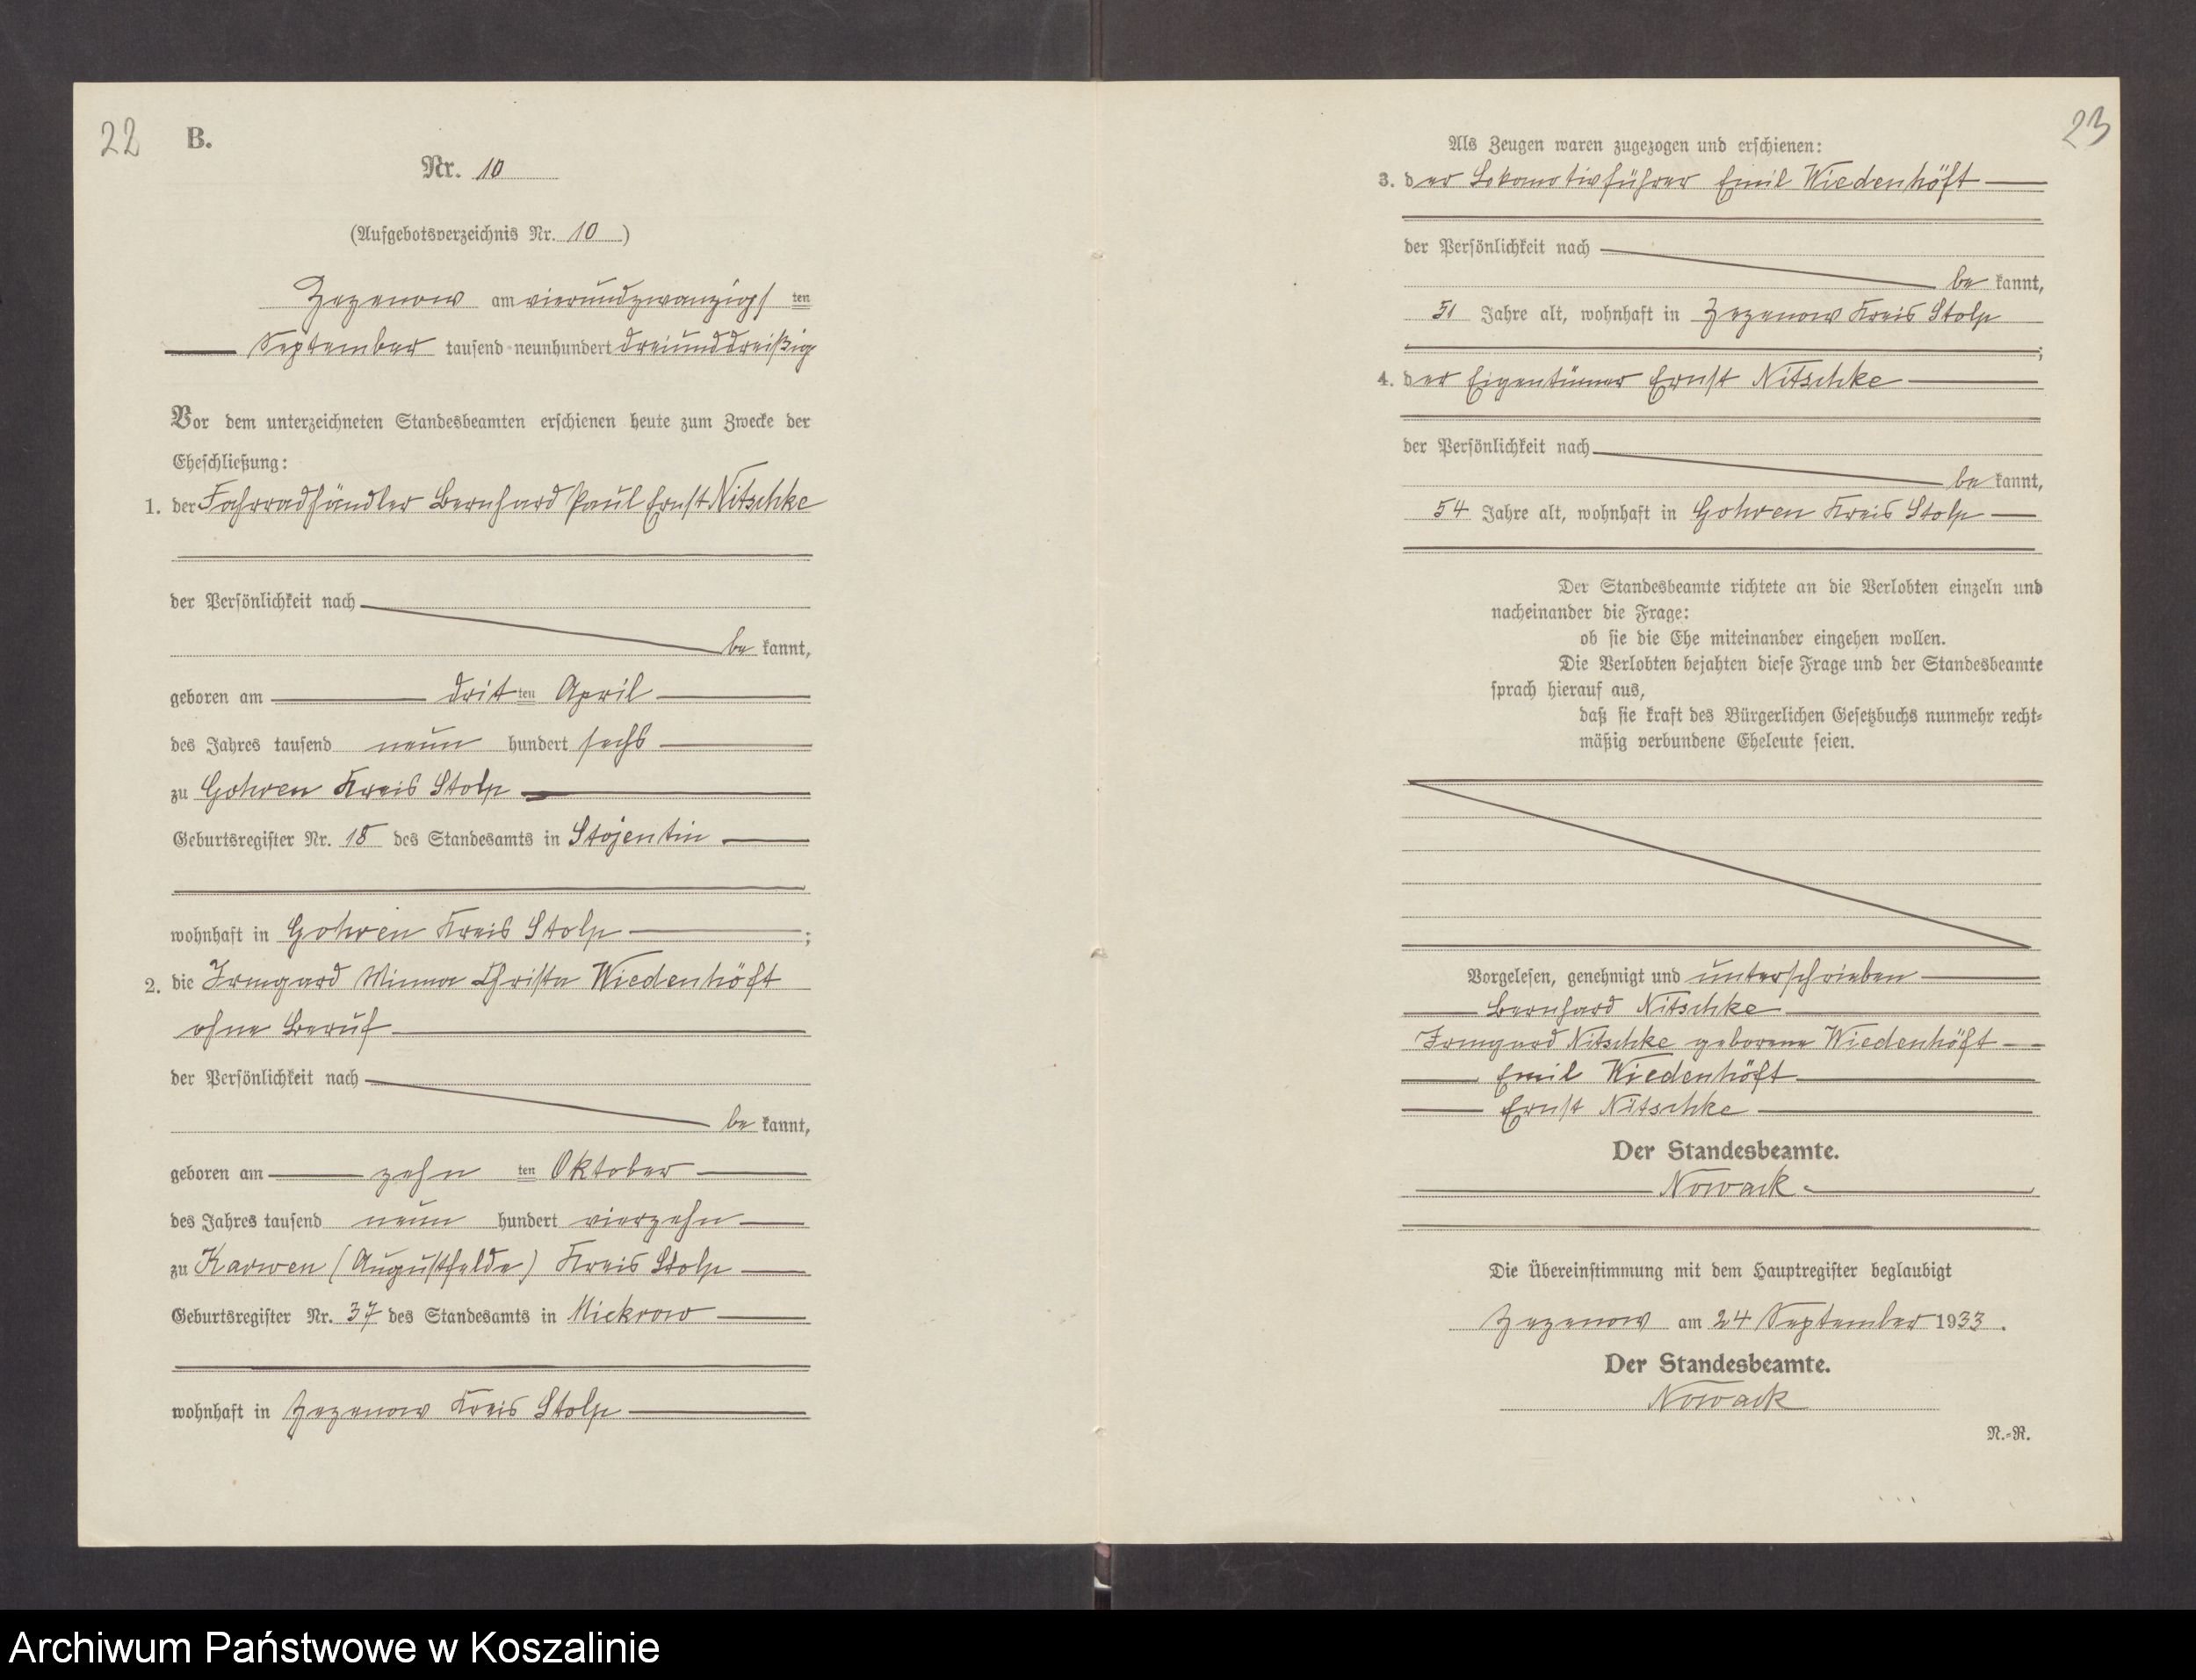 22
B.
Nr. 10
(Aufgebotsverzeichnis Nr. 10)
Zezenow am vierundzwanzigs ten
September tausend neunhundert dreiunddreißig
Vor dem unterzeichneten Standesbeamten erschienen heute zum Zwecke der
Eheschließung:
1. der Fahrradhändler Bernhard Paul Ernst Nitschke
der Persönlichkeit nach
be kannt,
geboren am drit ten April
des Jahres tausend neun hundert sechs
zu Gohren Kreis Stolp
Geburtsregister Nr. 18 des Standesamts in Stojentin
wohnhaft in Gohren Kreis Stolp ;
2. die Irmgard Minna Christa Wiedenhöft
ohne Beruf
der Persönlichkeit nach
be kannt,
geboren am zehn ten Oktober
des Jahres tausend neun hundert vierzehn
zu Karwen (Augustfelde) Kreis Stolp
Geburtsregister Nr. 37 des Standesamts in Mickrow
wohnhaft in Zezenow Kreis Stolp
23
Als Zeugen waren zugezogen und erschienen:
3. der Lokomotivführer Emil Wiedenhöft
der Persönlichkeit nach
be kannt,
51 Jahre alt, wohnhaft in Zezenow Kreis Stolp
;
4. der Eigentümer Ernst Nitschke
der Persönlichkeit nach
be kannt,
54 Jahre alt, wohnhaft in Gohren Kreis Stolp
Der Standesbeamte richtete an die Verlobten einzeln und
nacheinander die Frage:
ob sie die Ehe miteinander eingehen wollen.
Die Verlobten bejahten diese Frage und der Standesbeamte
sprach hierauf aus,
daß sie kraft des Bürgerlichen Gesetzbuchs nunmehr recht-
mäßig verbundene Eheleute seien.
Vorgelesen, genehmigt und unterschrieben
Bernhard Nitschke
Irmgard Nitschke geborene Wiedenhöft
Emil Wiedenhöft
Ernst Nitschke
Der Standesbeamte.
Nowack.
Die Übereinstimmung mit dem Hauptregister beglaubigt
Zezenow am 24 September 1933.
Der Standesbeamte.
Nowack
N.-R.
Archiwum Państwowe w Koszalinie